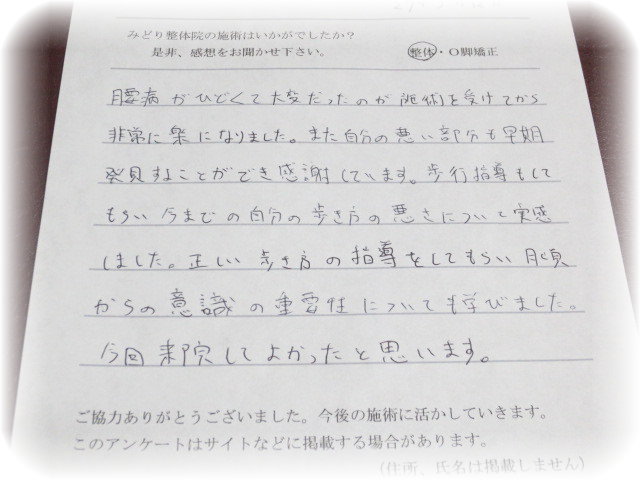 みどり整体院の施術はいかがでしたか？
是非、感想をお聞かせ下さい。
整体・O脚矯正
腰痛がひどくて大変だったのが施術を受けてから
非常に楽になりました。また自分の悪い部分も早期
発見することができ感謝しています。歩行指導もして
もらい今までの自分の歩き方の悪さについて実感
しました。正しい歩き方の指導をしてもらい日頃
からの意識の重要性についても学びました。
今回来院してよかったと思います。
ご協力ありがとうございました。今後の施術に活かしていきます。
このアンケートはサイトなどに掲載する場合があります。
（住所、氏名は掲載しません）